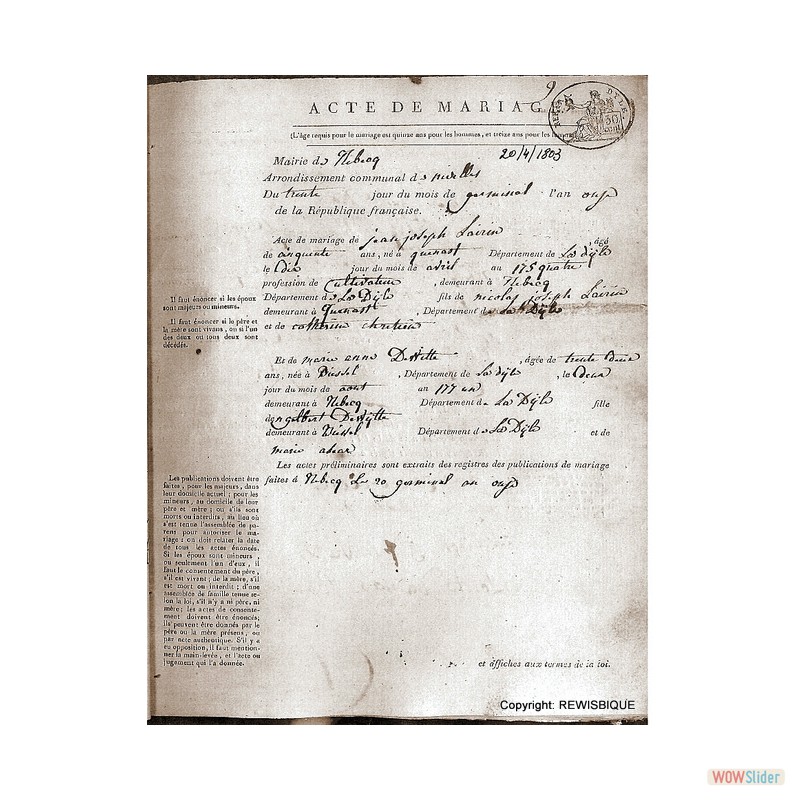 9
ACTE DE MARIAG
DYLE.
30
(L'âge requis pour le mariage est quinze ans pour les hommes, et treize ans pour les
Mairie de Rebecq 20/4/1803
Arrondissement communal de nivelles
Du trente jour du mois de germinal l'an onze
de la République française.
Acte de mariage de jean joseph Lairin , âgé
de cinquante ans, né à quenast Département de La dyle
le dix jour du mois de avril an 175quatre
profession de Cultivateur , demeurant à Rebecq
Département de La Dyle fils de nicolas joseph Lairin
demeurant à Quenast Département de La Dyle
et de catherine chretien
Il faut énoncer si les époux
sont majeurs ou mineurs.
Il faut énoncer si le père et
la mère sont vivans, ou si l'un
des deux ou tous deux sont
décédés.
Et de marie anne DeWitte , âgée de trente deux
ans, née à Bissel , Département de La dyle , le deux
jour du mois de aout an 177 un
demeurant à Rebecq Département de La Dyle fille
de ngelbert DeWytte
demeurant à Bissel Département de La Dyle et de
marie
Les actes préliminaires sont extraits des registres des publications de mariage
faites à Rebecq Le 20 germinal an onze
Les publications doivent être
faites, pour les majeurs, dans
leur domicile actuel; pour les
mineurs, au domicile de leur
père et mère; ou s'ils sont
morts ou interdits, au lieu où
s'est tenue l'assemblée de pa-
rens pour autoriser le ma-
riage: on doit relater la date
de tous les actes énoncés.
Si les époux sont mineurs,
ou seulement l'un d'eux, il
faut le consentement du père,
s'il est vivant; de la mère, s'il
est mort ou interdit; d'une
assemblée de famille tenue se-
lon la loi, s'il n'y a ni père, ni
mère; les actes de consente-
ment doivent être énoncés;
ils peuvent être donnés par le
père ou la mère présens, ou
par acte authentique. S'il y a
eu opposition, il faut mention-
ner la main-levée, et l'acte ou
jugement qui l'a donnée.
et affiches aux termes de la loi.
Copyright: REWISBIQUE
WOWSlider